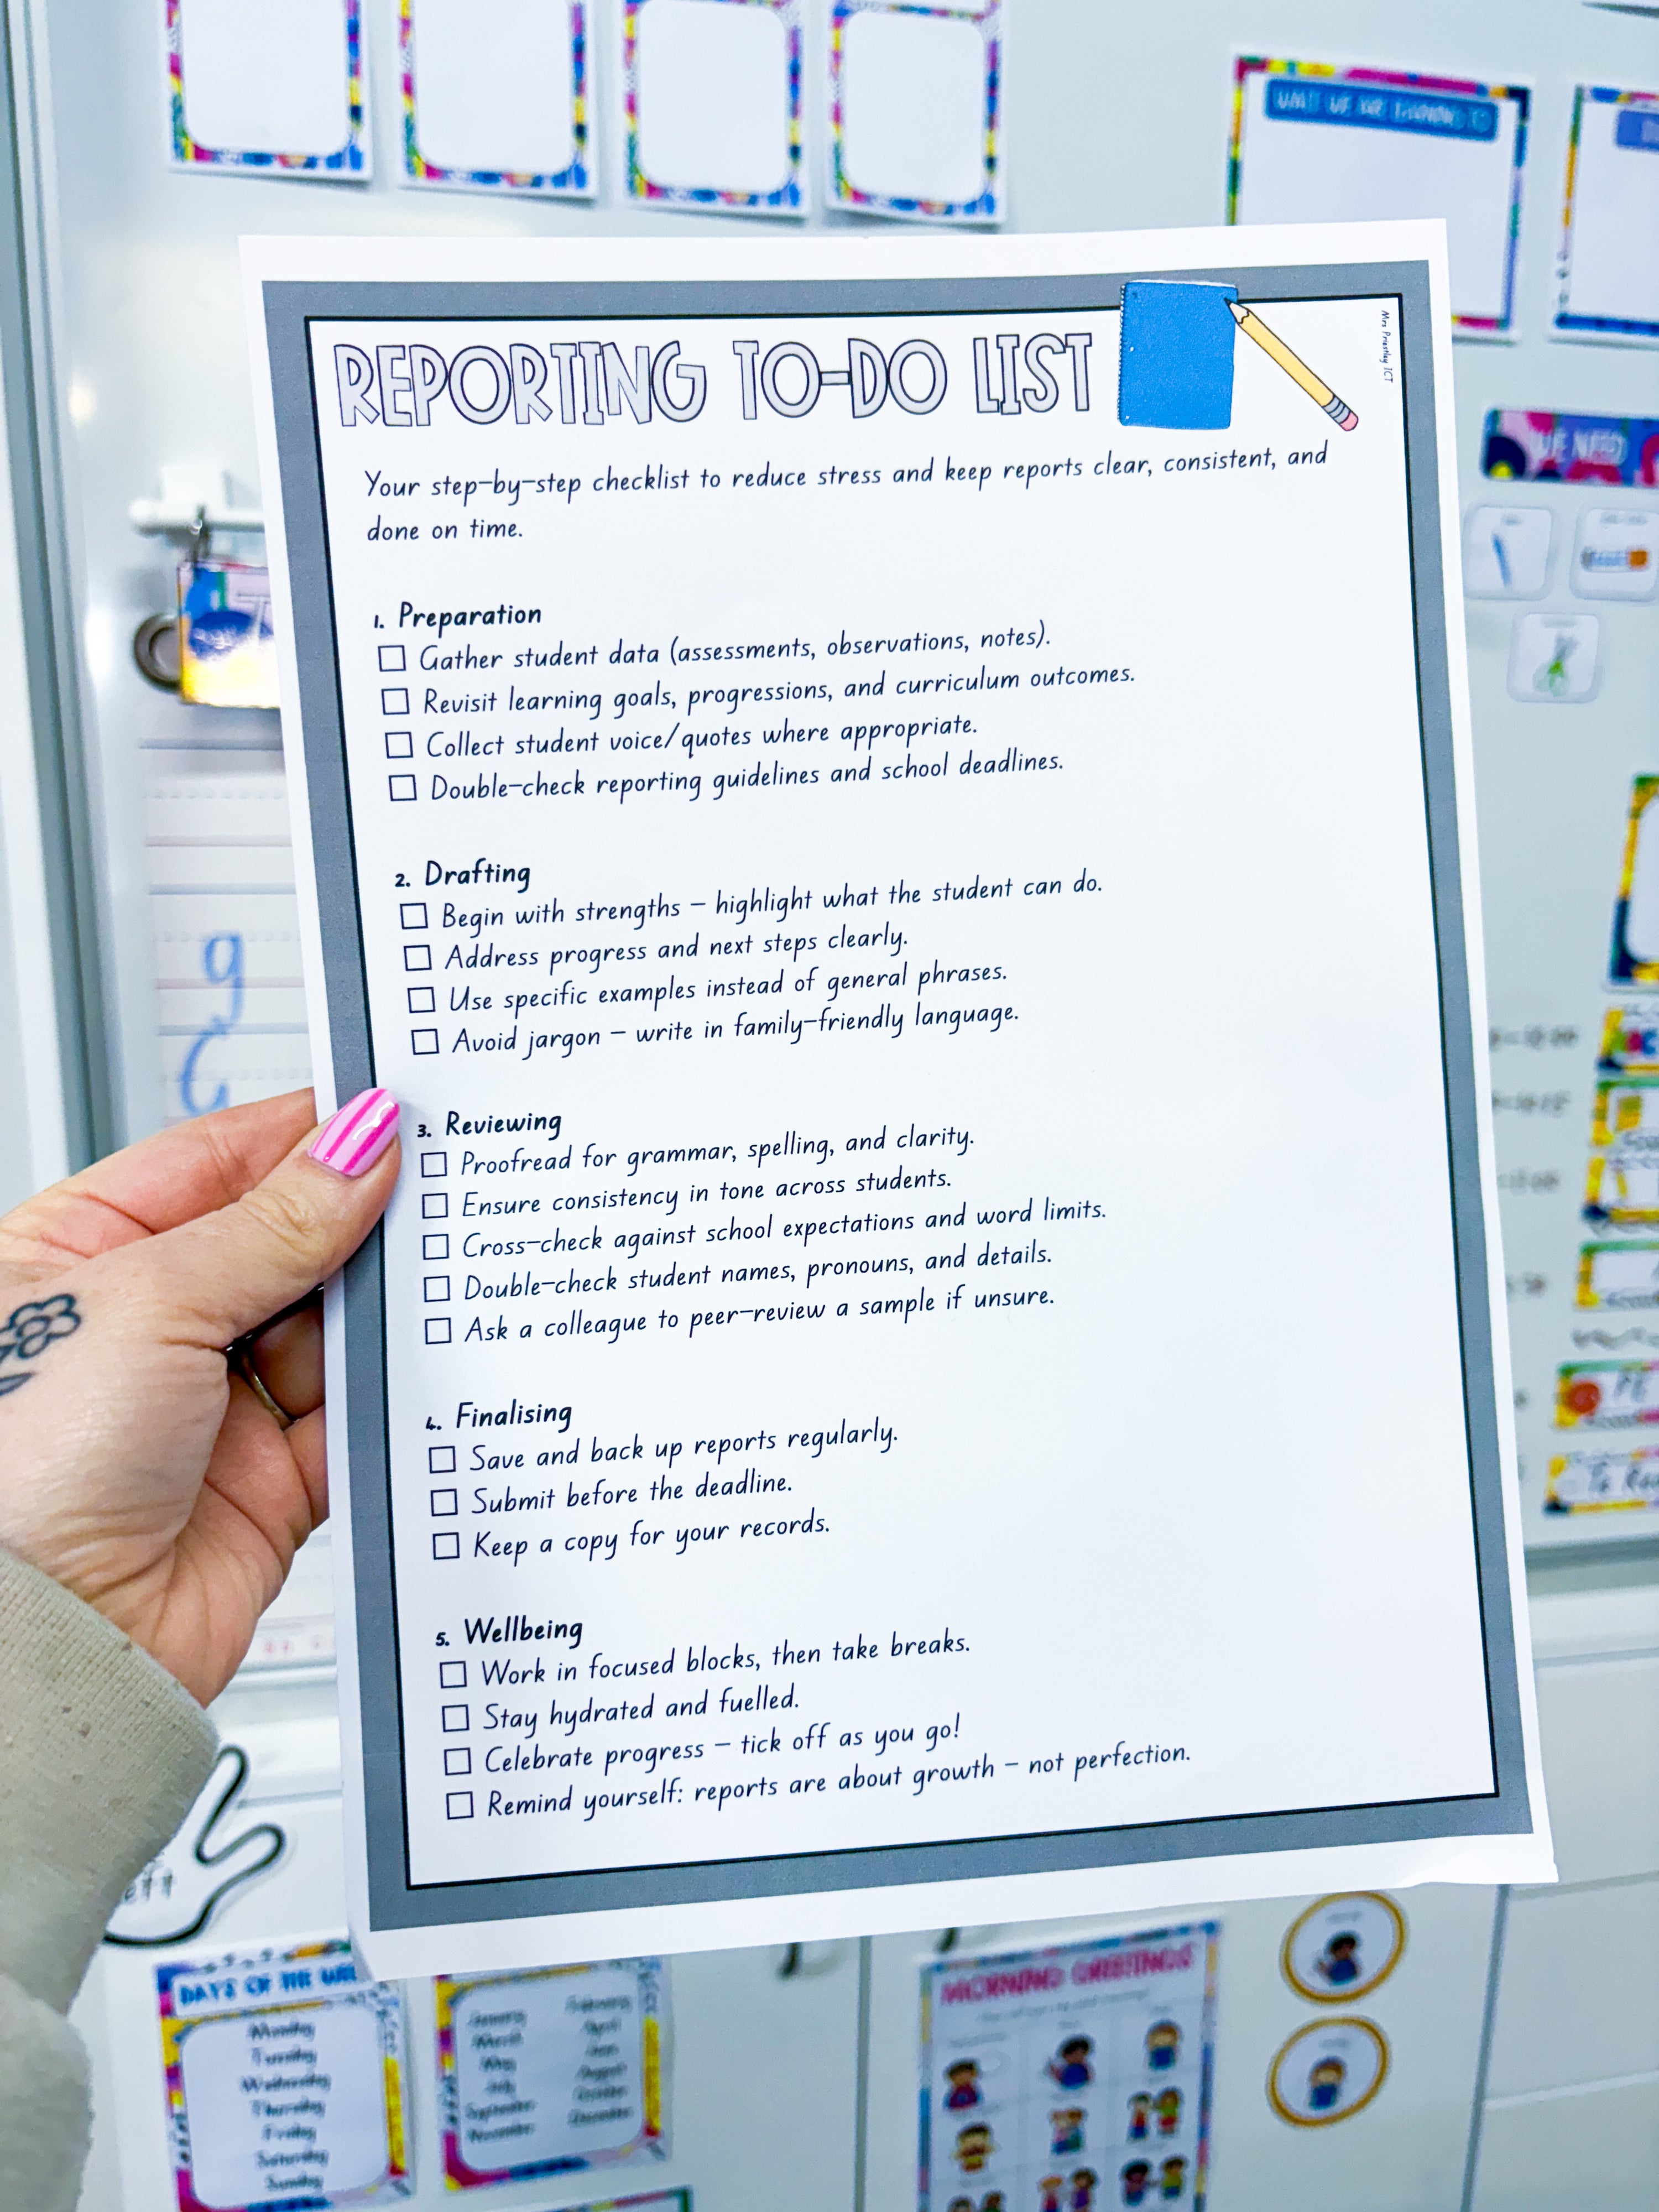 REPORTING TO-DO LIST
Mrs Priestley ICT
Your step-by-step checklist to reduce stress and keep reports clear, consistent, and
done on time.
1. Preparation
Gather student data (assessments, observations, notes).
Revisit learning goals, progressions, and curriculum outcomes.
Collect student voice/quotes where appropriate.
Double-check reporting guidelines and school deadlines.
2. Drafting
Begin with strengths – highlight what the student can do.
Address progress and next steps clearly.
Use specific examples instead of general phrases.
Avoid jargon – write in family-friendly language.
3. Reviewing
Proofread for grammar, spelling, and clarity.
Ensure consistency in tone across students.
Cross-check against school expectations and word limits.
Double-check student names, pronouns, and details.
Ask a colleague to peer-review a sample if unsure.
4. Finalising
Save and back up reports regularly.
Submit before the deadline.
Keep a copy for your records.
5. Wellbeing
Work in focused blocks, then take breaks.
Stay hydrated and fuelled.
Celebrate progress – tick off as you go!
Remind yourself: reports are about growth – not perfection.
WE NEED
g
DAYS OF THE
Monday
Tuesday
Wednesday
Thursday
Friday
Saturday
Sunday
January February
March April
May June
July August
September October
November December
MORNING GREETINGS